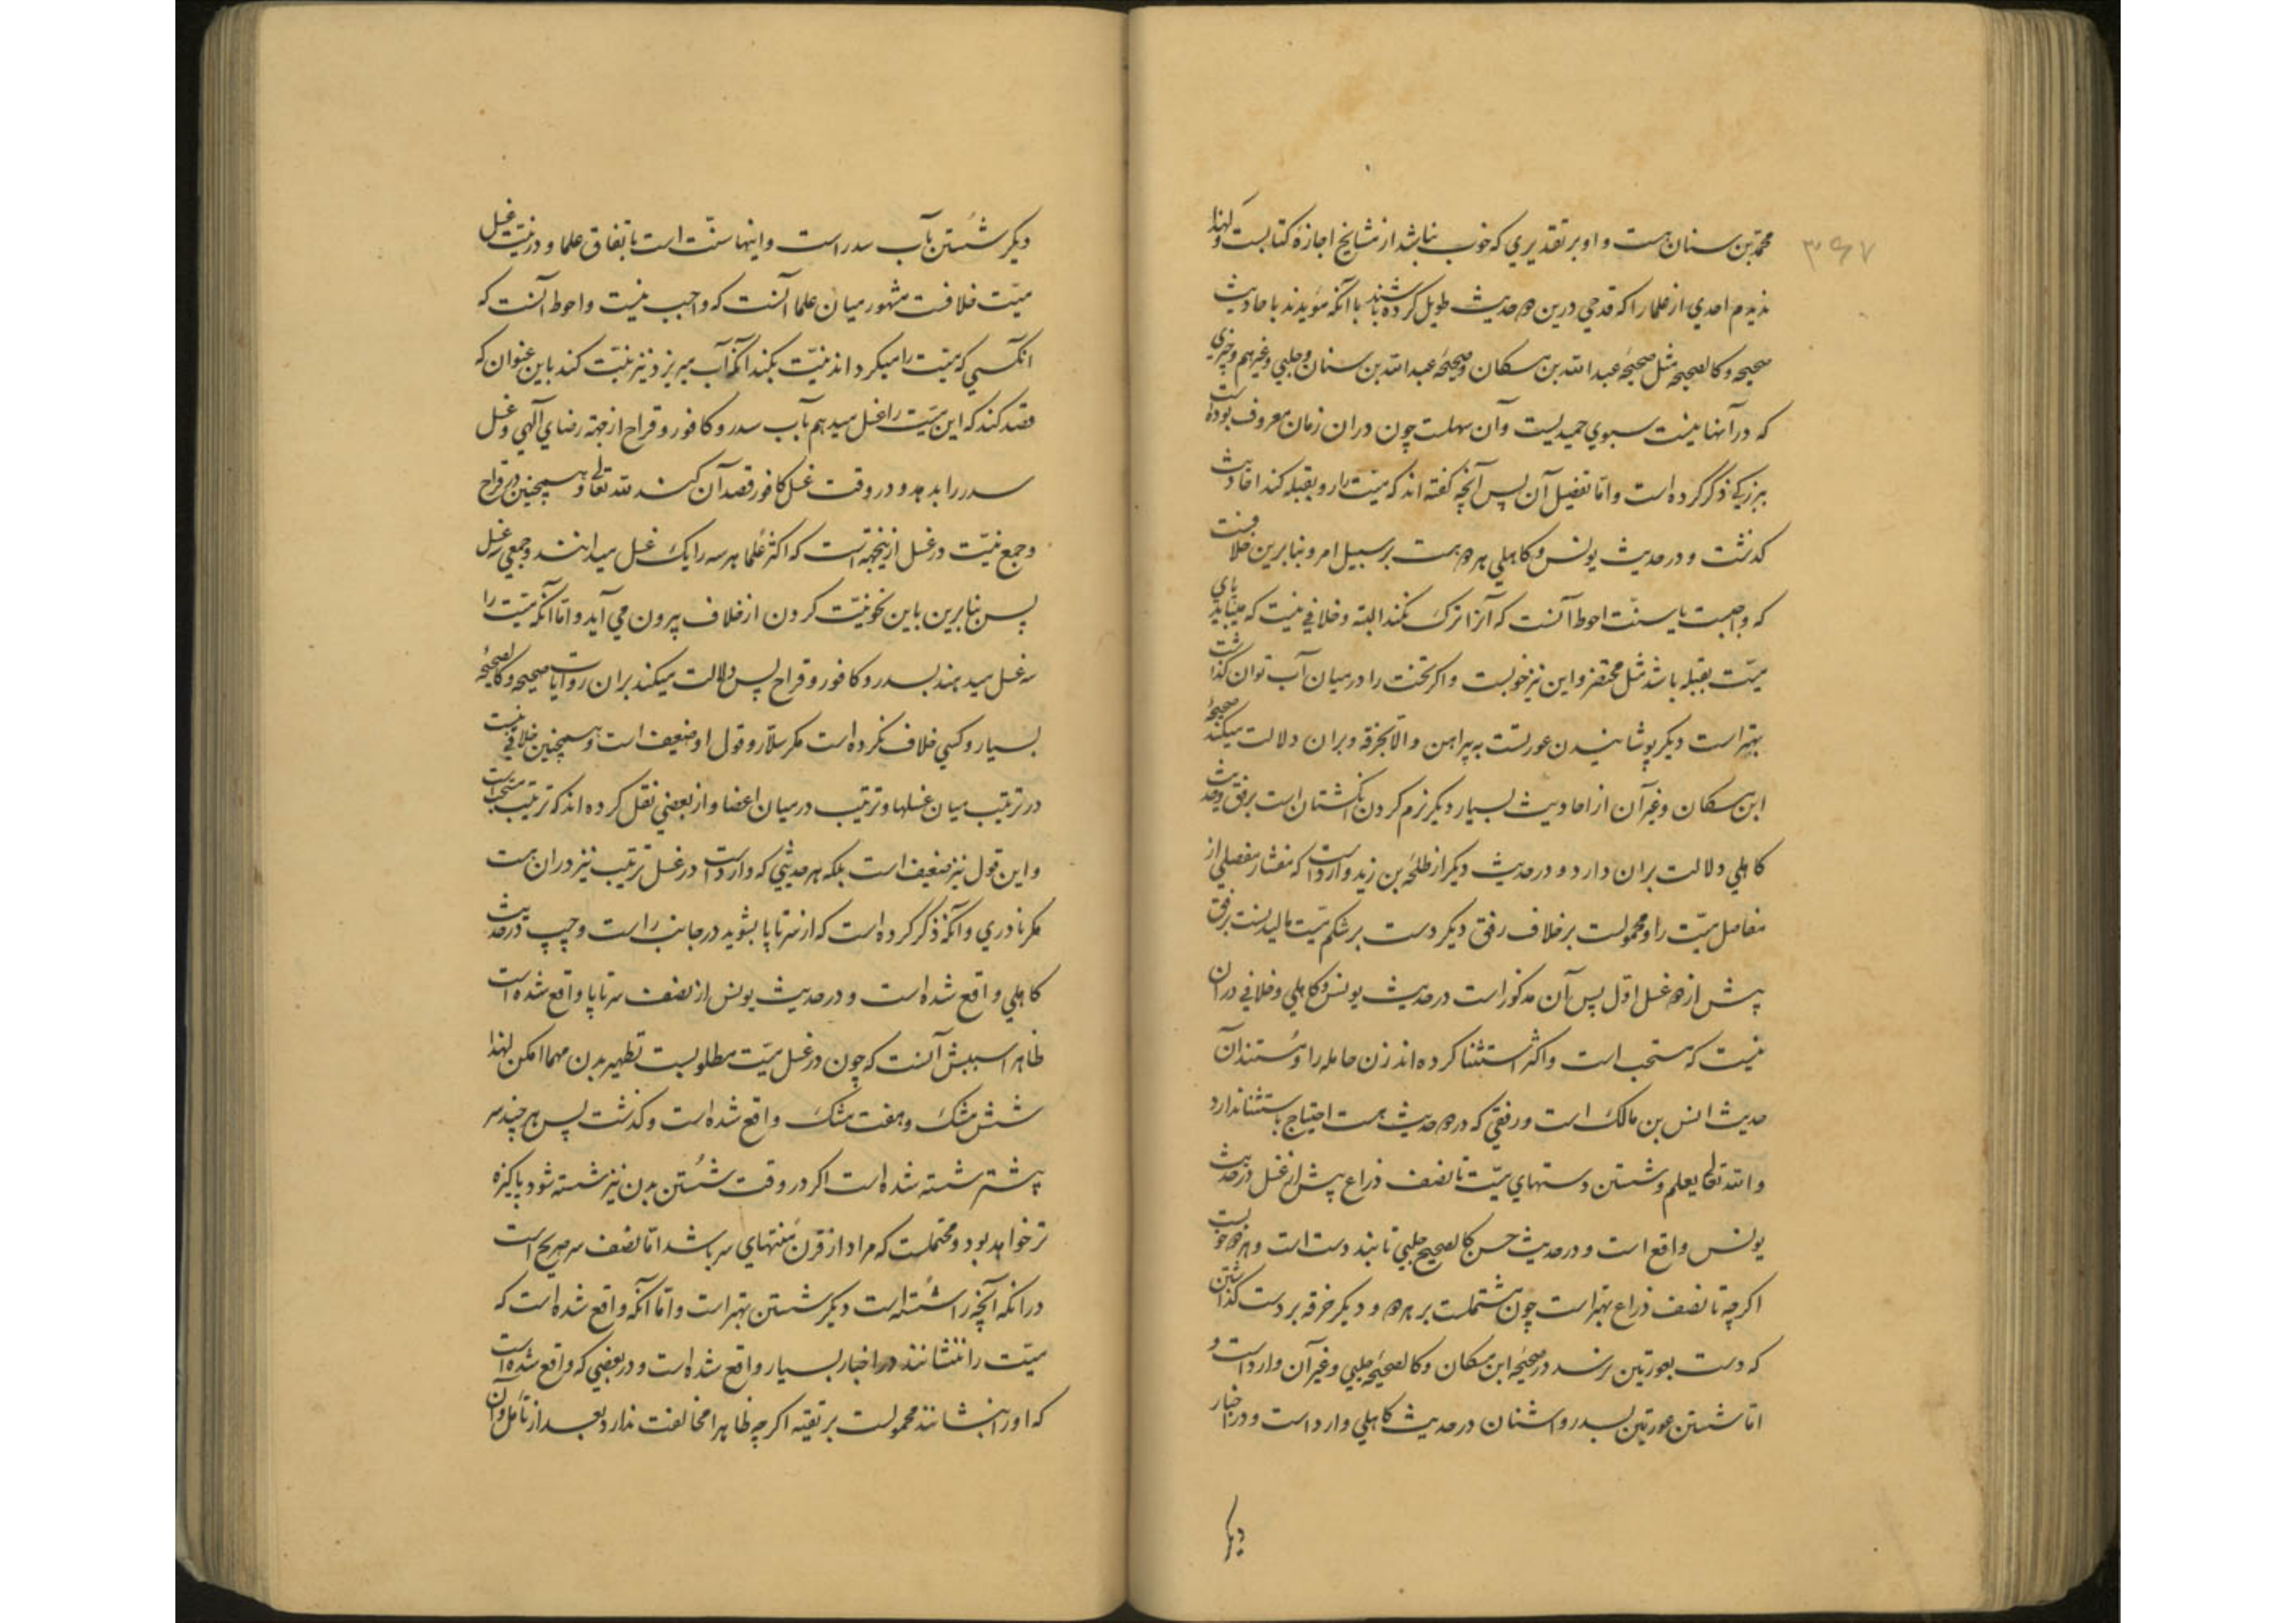 ۳۶۷
محمد بن سنان هست و او بر تقدیری که خوب نباشد از مشایخ اجازه کتابست و لهذا
ندیدم احدی از علما را که قدحی درین دو حدیث طویل کرده باشند با آنکه مؤیدند باحادیث
صحیحه و کالصحیحه مثل صحیحه عبد الله بن مسکان و صحیحه عبد الله بن سنان و حلبی و غیرهم و چیزی
که در آنها نیست سبوی حمیدیست و آن سهلست چون دران زمان معروف بوده است
ببزرکی ذکر کرده است و اما تفصیل آن پس آنچه کفته اند که میت را رو بقبله کند احادیث
کذشت و در حدیث یونس و کاهلی هر دو هست بر سبیل امر و بنابرین خلافست
که واجبست یا سنت احوط آنست که آنرا ترک نکند البته و خلافی نیست که میباید پای
میت بقبله باشد مثل محتضر و این نیز خوبست و اکر تخت را در میان آب توان کذاشت
بهتر است دیکر پوشانیدن عورتست به پیراهن و الا بخرقه و بران دلالت میکند صحیحه
ابن مسکان و غیر آن از احادیث بسیار دیکر نرم کردن انکشتان است برفق و حدیث
کاهلی دلالت بران دارد و در حدیث دیکر از طلحه بن زید وارد است که مفشار مفصلی از
مفاصل میت را و محمولست بر خلاف رفق دیکر دست بر شکم میت مالیدنست برفق
پیش از دو غسل اول پس آن مذکور است در حدیث یونس و کاهلی و خلافی در ان
نیست که مستحب است و اکثر استثنا کرده اند زن حامله را و مستند آن
حدیث انس بن مالک است و رفقی که در دو حدیث هست احتیاج باستثنا ندارد
و الله تعالی یعلم و شستن دستهای میت تا نصف ذراع پیش از غسل در حدیث
یونس واقع است و در حدیث حسن کالصحیح حلبی تا بند دست است و هر دو خوبست
اکرچه تا نصف ذراع بهتر است چون مشتملست بر هر دو و دیکر خرقه بر دست کذاشتن
که دست بعورتین نرسد در صحیحه ابن مسکان و کالصحیحه حلبی و غیر آن وارد است و
اما شستن عورتین بسدر و اشنان در حدیث کاهلی وارد است و در اخبار
دیکر
دیکر شستن بآب سدر است و اینها سنت است باتفاق علما و در نیت غسل
میت خلافست مشهور میان علما آنست که واجب نیست و احوط آنست که
انکسی که میت را میکرداند نیت بکند آنکه آب میریزد نیز نیت کند باین عنوان که
قصد کند که این میت را غسل میدهم بآب سدر و کافور و قراح از جهة رضای آلهی و غسل
سدر را بدهد و در وقت غسل کافور قصد آن کند لله تعالی و همچنین در قراح
و جمع نیت در غسل ازینجهة است که اکثر علما هر سه را یک غسل میدانند و جمعی سه غسل
پس بنابرین باین نحو نیت کردن از خلاف بیرون می آید و اما آنکه میت را
سه غسل میدهند بسدر و کافور و قراح پس دلالت میکند بران روایات صحیحه و کالصحیحه
بسیار و کسی خلاف نکرده است مکر سلار و قول او ضعیف است و همچنین خلافی نیست
در ترتیب میان غسلها و ترتیب در میان اعضا و از بعضی نقل کرده اند که ترتیب مستحب است
و این قول نیز ضعیف است بلکه هر حدیثی که وارد است در غسل ترتیب نیز در ان هست
مکر نادری و آنکه ذکر کرده است که از سر تا پا بشوید در جانب راست و چپ در حدیث
کاهلی واقع شده است و در حدیث یونس از نصف سر تا پا واقع شده است
ظاهرا سببش آنست که چون در غسل میت مطلوبست تطهیر بدن مهما امکن لهذا
شش مشک و هفت مشک واقع شده است و کذشت پس هر چند سر
پیشتر شسته شده است اکر در وقت شستن بدن نیز شسته شود پاکیزه
تر خواهد بود و محتملست که مراد از قرن منتهای سر باشد اما نصف سر صریح است
در انکه آنچه را شسته است دیکر شستن بهتر است و اما آنکه واقع شده است که
میت را ننشانند در اخبار بسیار واقع شده است و در بعضی که واقع شده است
که او را بنشانند محمولست بر تقیه اکرچه ظاهرا مخالفت ندارد بعد از تأمل و آن